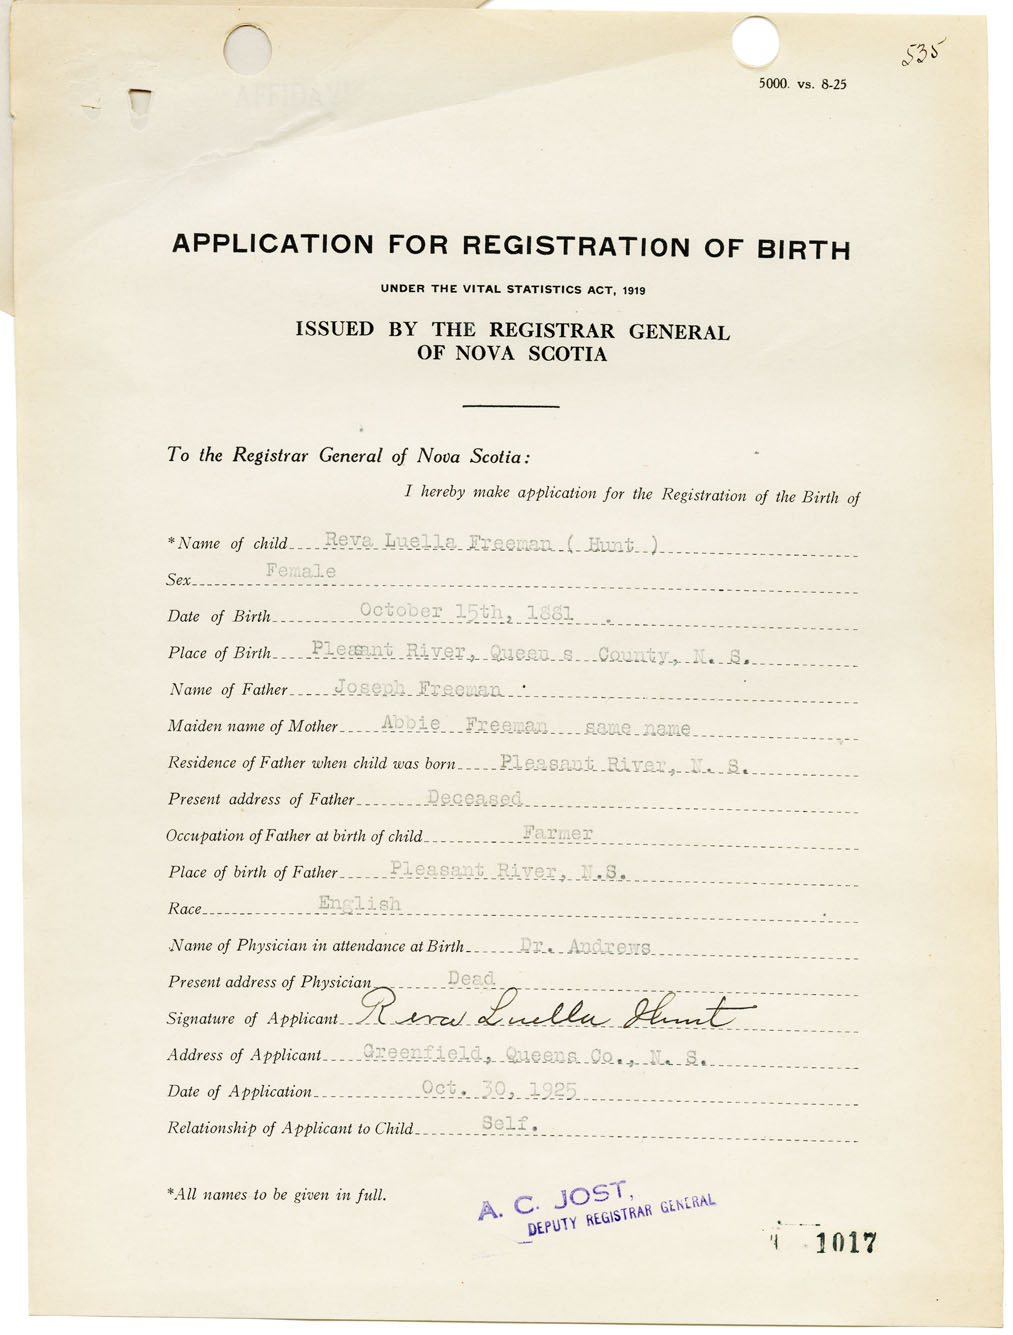 535
5000. vs. 8-25
APPLICATION FOR REGISTRATION OF BIRTH
UNDER THE VITAL STATISTICS ACT, 1919
ISSUED BY THE REGISTRAR GENERAL
OF NOVA SCOTIA
To the Registrar General of Nova Scotia:
I hereby make application for the Registration of the Birth of
*Name of child Reva Luella Freeman ( Hunt )
Sex Female
Date of Birth October 15th, 1881 .
Place of Birth Pleasant River, Queen s County, N. S.
Name of Father Joseph Freeman
Maiden name of Mother Abbie Freeman same name
Residence of Father when child was born Pleasant River, N. S.
Present address of Father Deceased
Occupation of Father at birth of child Farmer
Place of birth of Father Pleasant River, N.S.
Race English
Name of Physician in attendance at Birth Dr. Andrews
Present address of Physician Dead
Signature of Applicant Reva Luella Hunt
Address of Applicant Greenfield, Queens Co., N. S.
Date of Application Oct. 30, 1925
Relationship of Applicant to Child Self.
*All names to be given in full.
A. C. JOST,
DEPUTY REGISTRAR GENERAL
1017